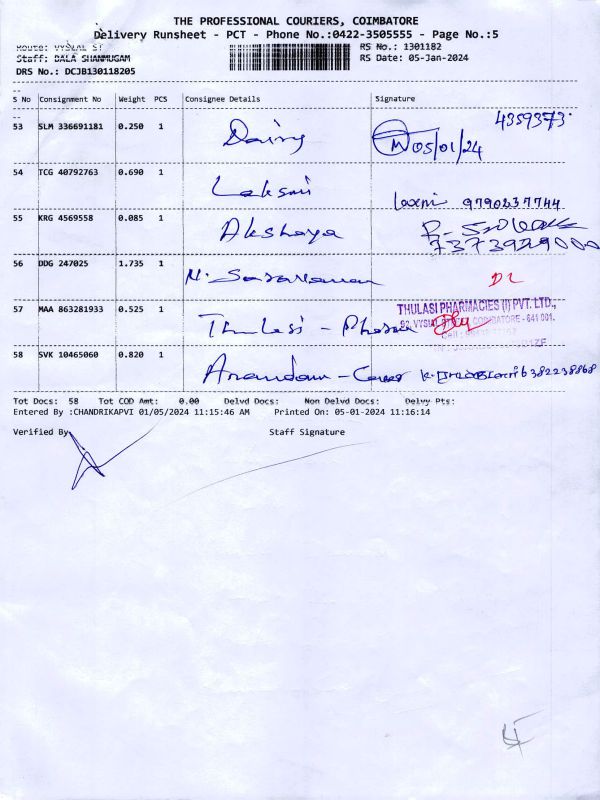 THE PROFESSIONAL COURIERS, COIMBATORE
Delivery Runsheet - PCT - Phone No.:0422-3505555 - Page No.:5
Route: VYSIAL ST RS No.: 1301182
Staff: BALA SHANMUGAM RS Date: 05-Jan-2024
DRS No.: DCJB130118205
S No Consignment No Weight PCS Consignee Details Signature
53 SLM 336691181 0.250 1 Dairy 4359373
05/01/24
54 TCG 40792763 0.690 1 Laksmi Laxmi 9790237744
55 KRG 4569558 0.085 1 Akshaya
7373929000
56 DDG 247025 1.735 1 N. Saravanan
57 MAA 863281933 0.525 1 Thulasi - Pharma THULASI PHARMACIES (I) PVT. LTD.,
COIMBATORE - 641 001.
58 SVK 10465060 0.820 1 Anandam 6382238868
Tot Docs: 58 Tot COD Amt: 0.00 Delvd Docs: Non Delvd Docs: Delvy Pts:
Entered By :CHANDRIKAPVI 01/05/2024 11:15:46 AM Printed On: 05-01-2024 11:16:14
Verified By Staff Signature